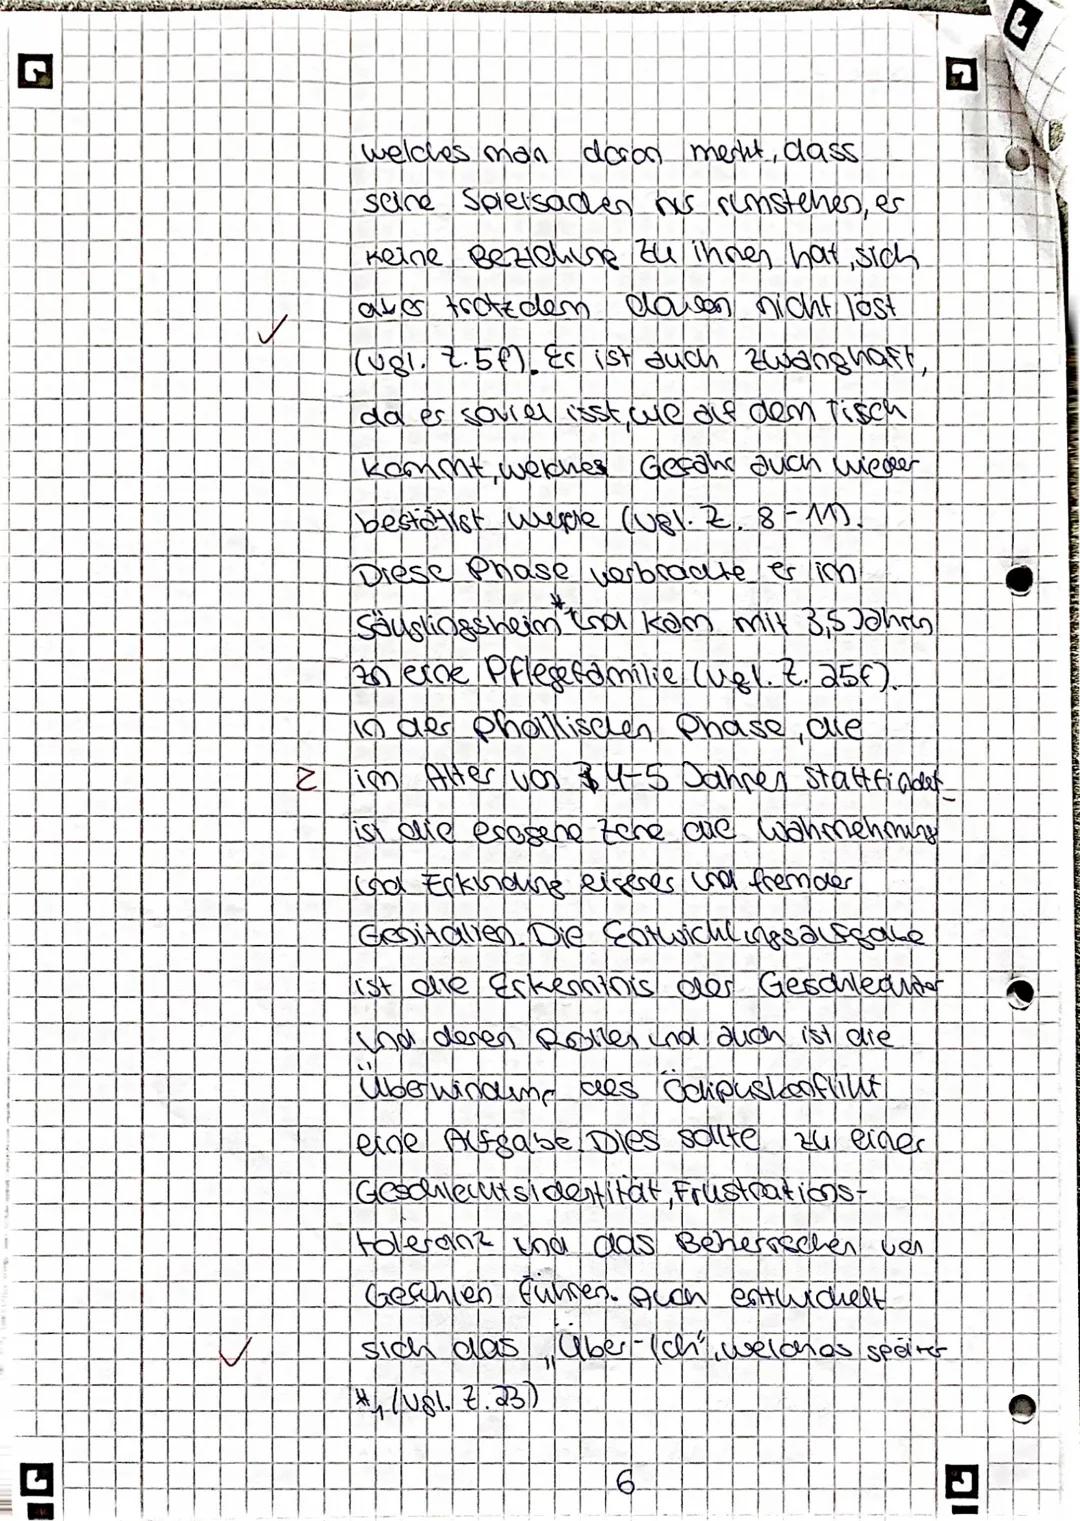 welches man daran merkt, dass
seine Spielsachen nur rumstehen, er
keine Beziehung zu ihnen hat, sich
aber trotzdem davon nicht löst
(vgl. Z. 5f). Er ist auch zwanghaft,
da er soviel isst, wie auf dem Tisch
kommt, welches Gefahr auch wieder
bestätigt wurde (vgl. Z. 8-11).
Diese Phase verbrachte er im
Säuglingsheim*1 und kam mit 3,5 Jahren
in eine Pflegefamilie (vgl. Z. 25f).
In der phallischen Phase, die
Z im Alter von 4-5 Jahren stattfindet
ist die erogene Zone die Wahrnehmung
und Erkundung eigener und fremder
Genitalien. Die Entwicklungsaufgabe
ist die Erkenntnis der Geschlechter
und deren Rollen und auch ist die
Überwindung des Ödipuskonflikt
eine Aufgabe. Dies sollte zu einer
Geschlechtsidentität, Frustrations-
toleranz und das Beherrschen von
Gefühlen führen. Auch entwickelt
sich das „Über-Ich", welches später
*1 (vgl. Z. 23)
6